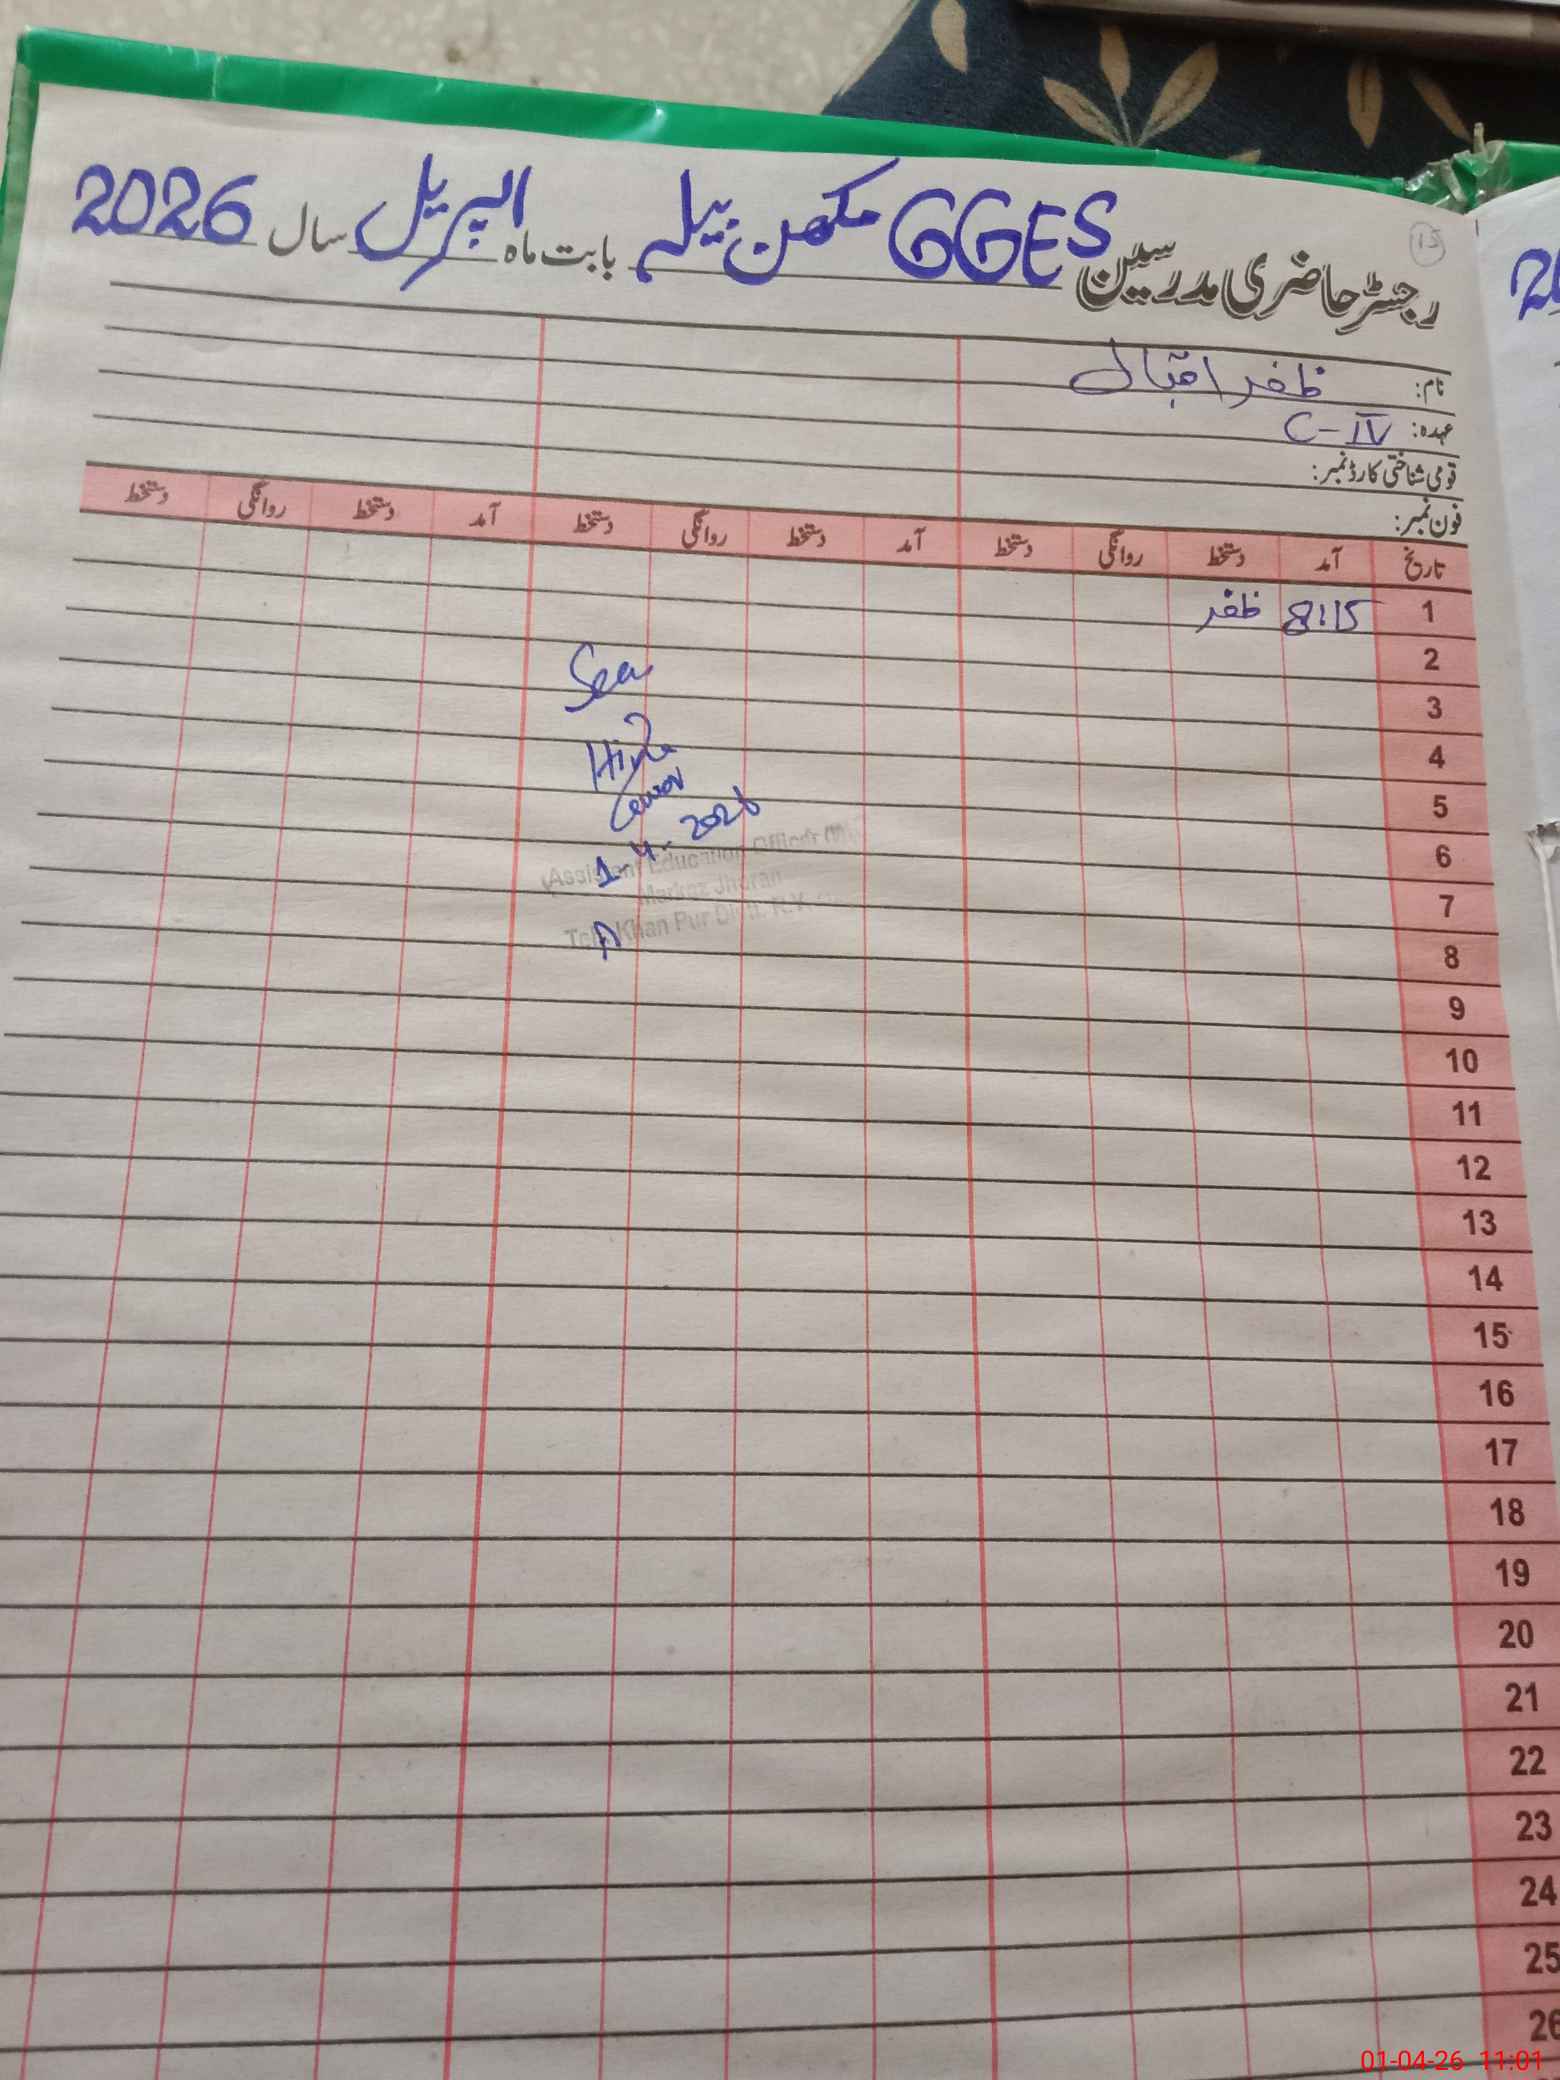 رجسٹر حاضری مدرسین GGES مکھن بیلہ بابت ماہ اپریل سال 2026
15
نام: ظفر اقبال
عہدہ: C-IV
قومی شناختی کارڈ نمبر:
فون نمبر:
تاریخ آمد دستخط روانگی دستخط آمد دستخط روانگی دستخط آمد دستخط روانگی دستخط
1 8:15 ظفر
2
3
4
5
6
7
8
9
10
11
12
13
14
15
16
17
18
19
20
21
22
23
24
25
26
Seen
1-4-2026
(Assistant Education Officer
Markaz Jhoran
Teh. Khan Pur Distt. R.Y.
01-04-26 11:01